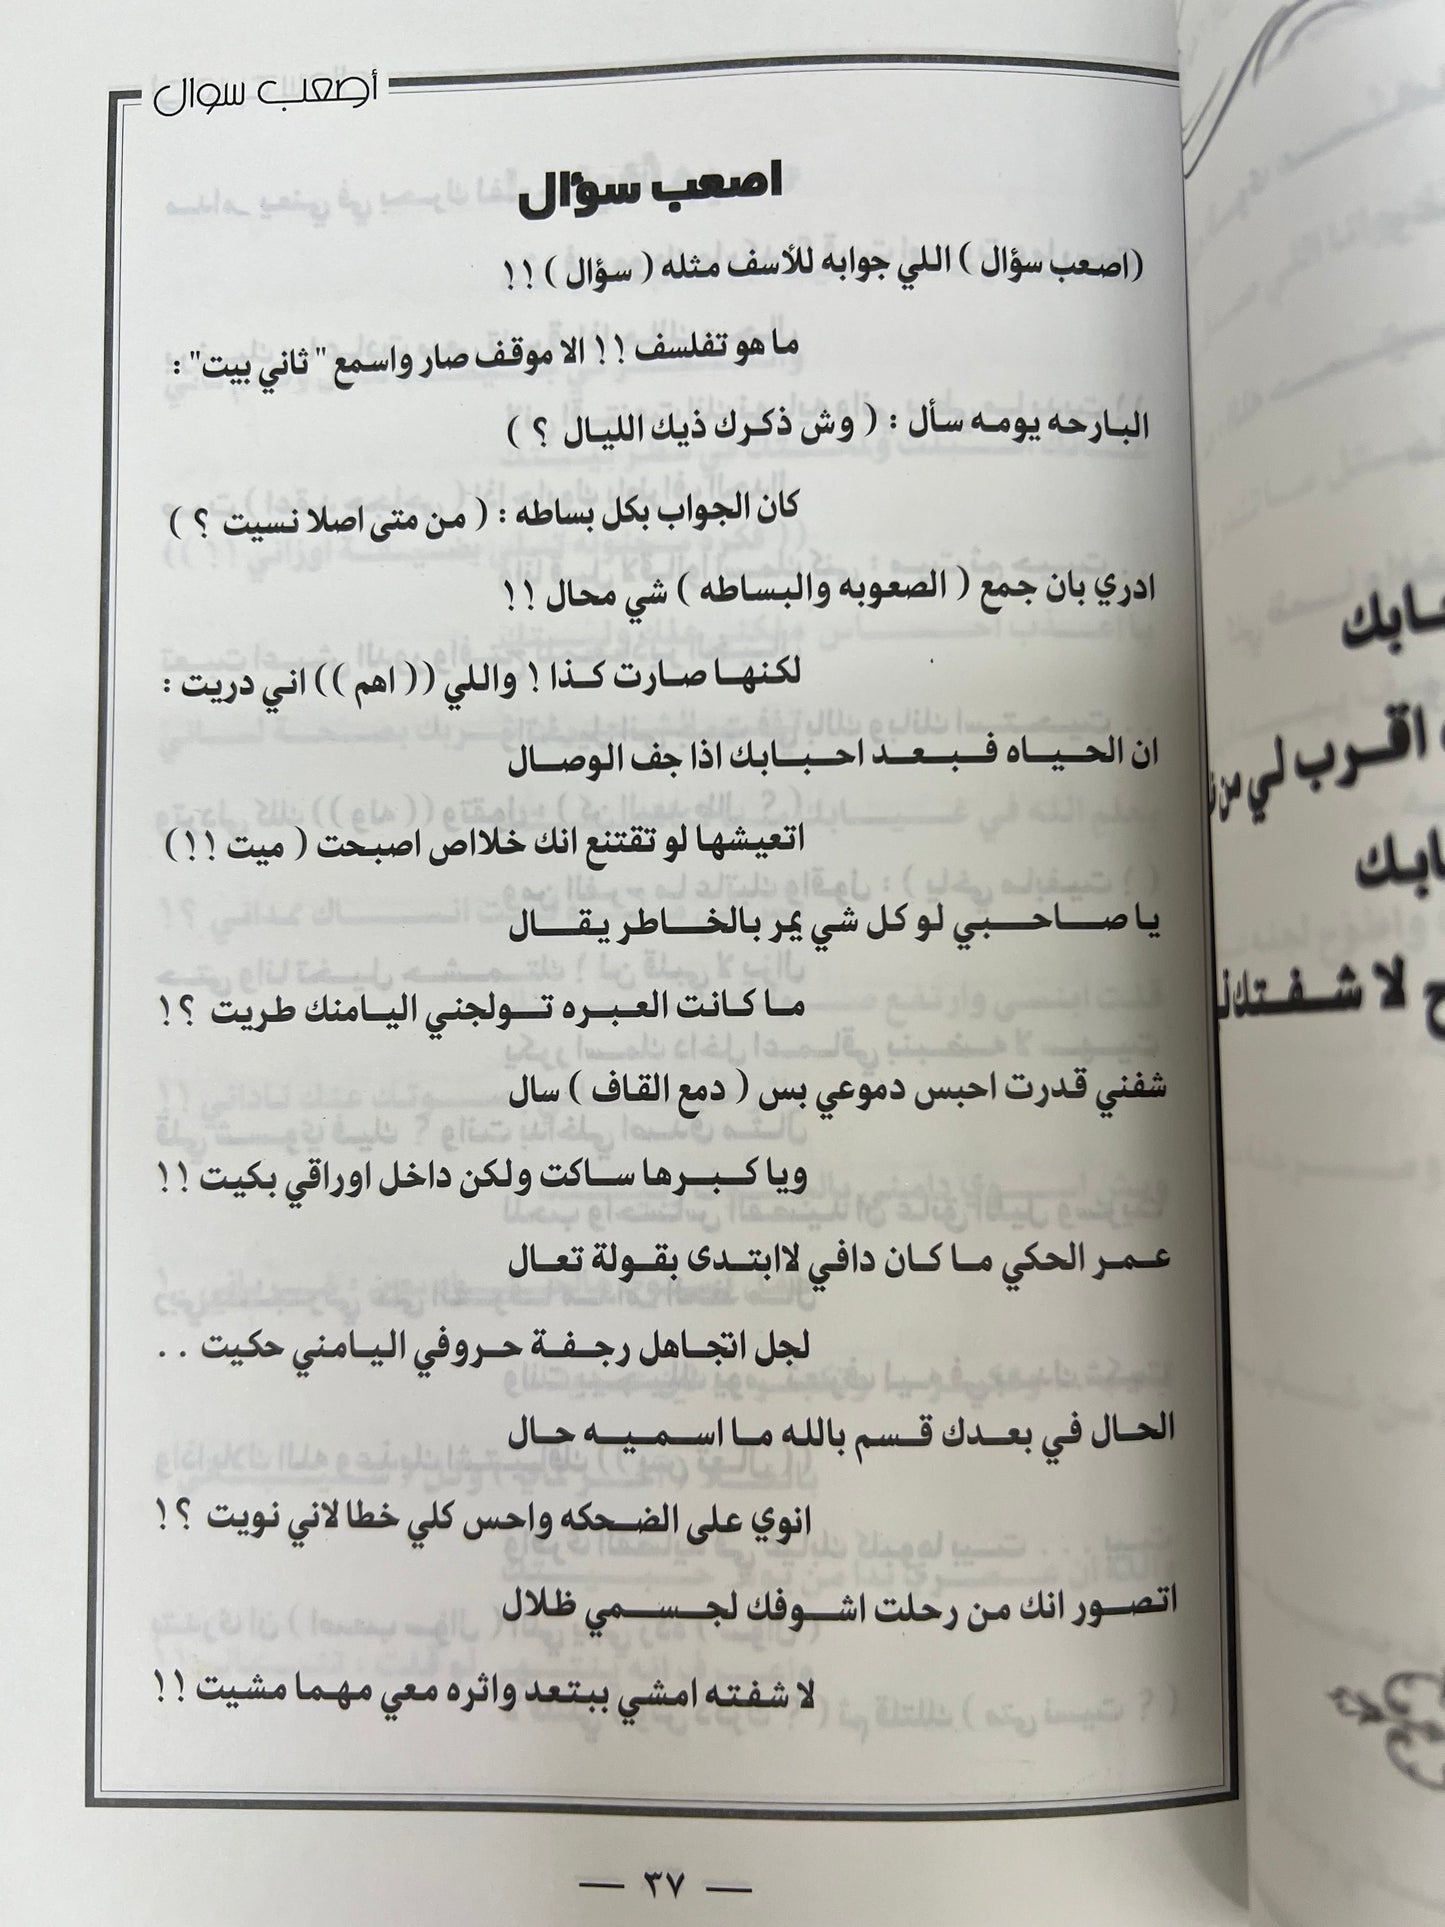 أصعب سوال
اصعب سؤال
(اصعب سؤال ) اللي جوابه للأسف مثله ( سؤال ) !!
ما هو تفلسف !! الا موقف صار واسمع " ثاني بيت" :
البارحه يومه سأل : ( وش ذكرك ذيك الليال ؟ )
كان الجواب بكل بساطه : ( من متى اصلا نسيت ؟ )
ادري بان جمع ( الصعوبه والبساطه ) شي محال !!
لكنها صارت كذا ! واللي (( اهم )) اني دريت :
ان الحياه فبعد احبابك اذا جف الوصال
اتعيشها لو تقتنع انك خلااص اصبحت ( ميت !!)
يا صاحبي لو كل شي يمر بالخاطر يقال
ما كانت العبره تولجني اليامنك طريت ؟!
شفني قدرت احبس دموعي بس ( دمع القاف ) سال
ويا كبرها ساكت ولكن داخل اوراقي بكيت !!
عمر الحكي ما كان دافي لاابتدى بقولة تعال
لجل اتجاهل رجفة حروفي اليامني حكيت ..
الحال في بعدك قسم بالله ما اسميه حال
انوي على الضحكه واحس كلي خطا لاني نويت ؟!
اتصور انك من رحلت اشوفك لجسمي ظلال
لا شفته امشي ببتعد واثره معي مهما مشيت !!
— ٣٧ —
اقرب لي من
لا شفتك